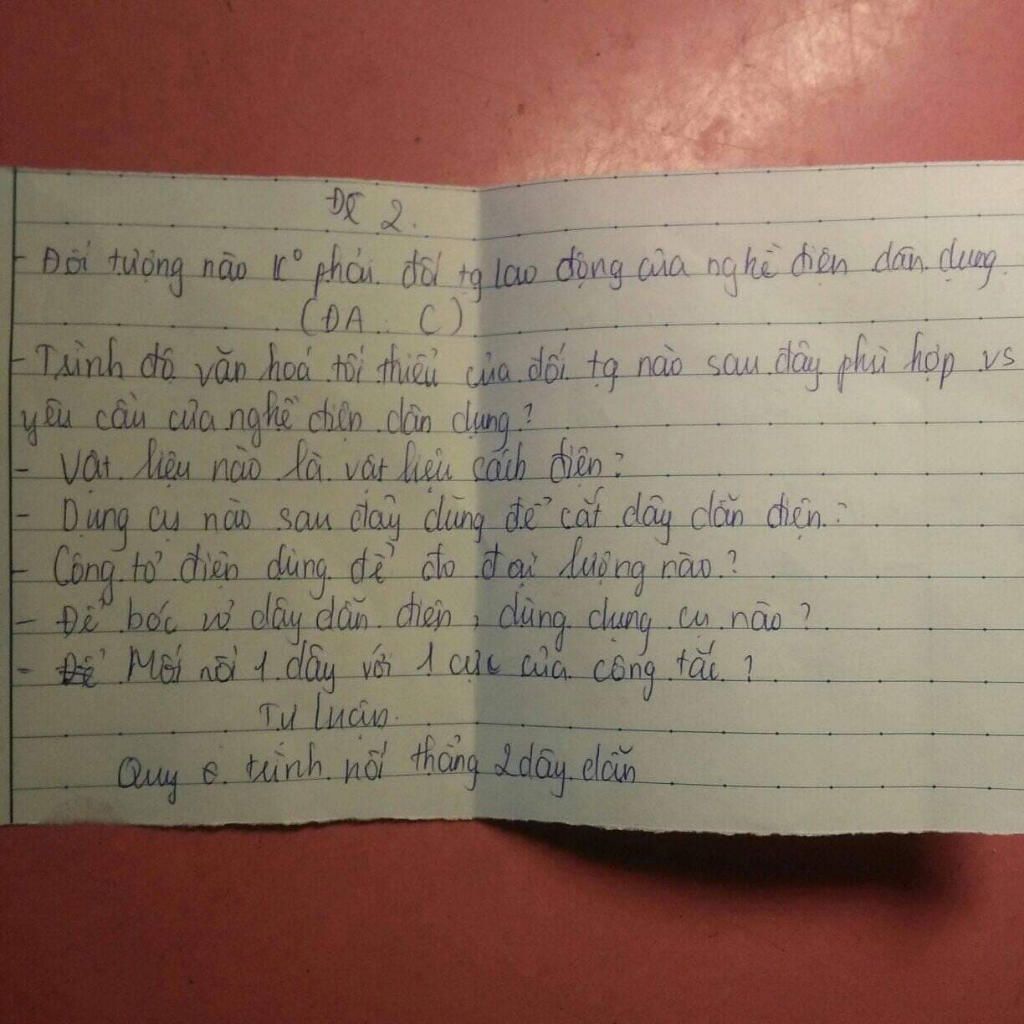 Đề 2.
- Đối tượng nào K° phải đối tg lao động của nghề điện dân dụng
(ĐA : C)
- Trình độ văn hoá tối thiểu của đối tg nào sau đây phù hợp vs
yêu cầu của nghề điện dân dụng?
- Vật liệu nào là vật liệu cách điện?
- Dụng cụ nào sau đây dùng để cắt dây dẫn điện?
- Công tơ điện dùng để đo đại lượng nào?
- Để bóc vỏ dây dẫn điện, dùng dụng cụ nào?
- Mối nối 1 dây với 1 cực của công tắc?
Tự luận.
Quy trình nối thẳng 2 dây dẫn